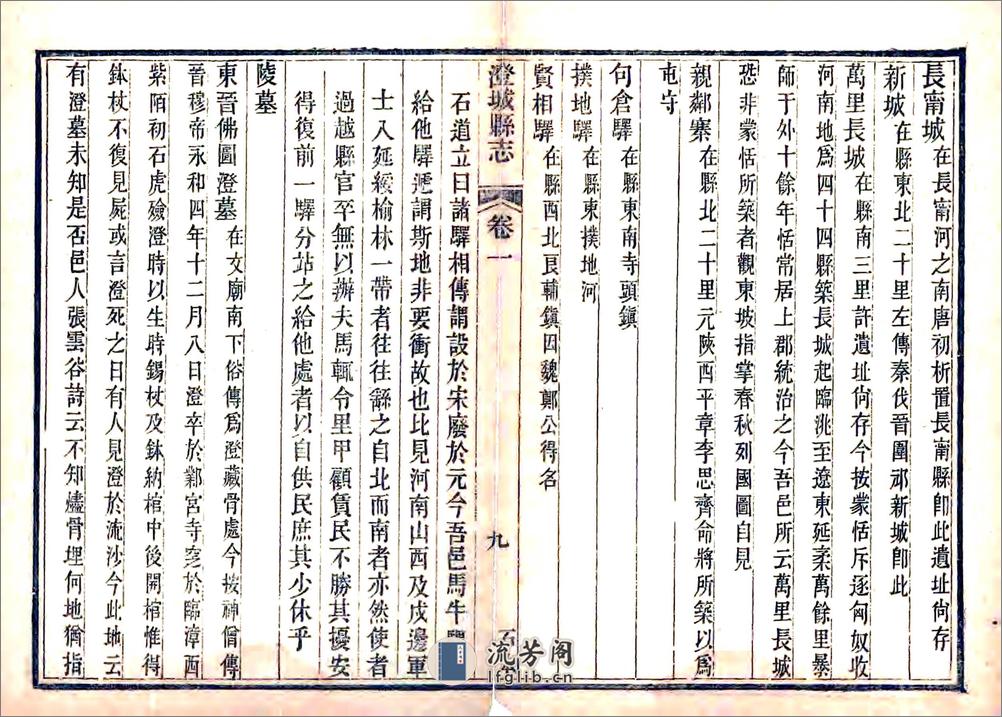 長甯城在長甯河之南唐初析置長甯縣卽此遺址尙存
新城在縣東北二十里左傳秦伐晉圍䢴新城卽此
萬里長城在縣南三里許遺址尙存今按蒙恬斥逐匈奴收
河南地爲四十四縣築長城起臨洮至遼東延袤萬餘里暴
師于外十餘年恬常居上郡統治之今吾邑所云萬里長城
恐非蒙恬所築者觀東坡指掌春秋列國圖自見
親鄰寨在縣北二十里元陝西平章李思齊命將所築以爲
屯守
句倉驛在縣東南寺頭鎮
撲地驛在縣東撲地河
賢相驛在縣西北良輔鎮因魏鄭公得名
澄城縣志 卷一 九
石道立曰諸驛相傳謂設於宋廢於元今吾邑馬牛
給他驛遞謂斯地非要衝故也比見河南山西及戍邊軍
士入延綏榆林一帶者往往繇之自北而南者亦然使者
過越縣官卒無以辦夫馬輒令里甲顧賃民不勝其擾安
得復前一驛分站之給他處者以自供民庶其少休乎
陵墓
東晉佛圖澄墓在文廟南下俗傳爲澄藏骨處今按神僧傳
晉穆帝永和四年十二月八日澄卒於鄴宮寺窆於臨漳西
紫陌初石虎殮澄時以生時錫杖及鉢納棺中後開棺惟得
鉢杖不復見屍或言澄死之日有人見澄於流沙今此地云
有澄墓未知是否邑人張雲谷詩云不知燼骨埋何地猶指
流芳阁
lfglib.cn